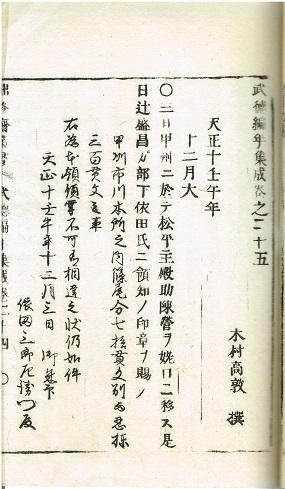 武徳編年集成巻之二十五
木村高敦 撰
天正十壬午年
十二月大
〇三日甲州ニ於テ松平主殿助陳営ヲ姥口ニ移ス是
日辻盛昌カ部下依田氏ニ領知ノ印章ヲ賜ノ
甲州市川本所之内篠尾分七拾貫文別而
三百貫文之事
右為本領領掌不可有相違之状仍如件
天正十壬午年十二月三日 御朱印
依田三郎左衛門殿
武徳編年集成巻二十四 〇